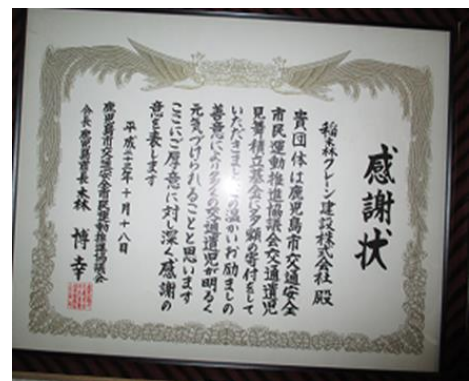 感謝状
稲森クレーン建設株式会社 殿
貴団体は鹿児島市交通安全
市民運動推進協議会交通遺児
見舞積立基金に多額の寄付をして
いただきました の温かいお励ましの
善意により多くの交通遺児が明るく
元気づけられることと思います
ここにご厚意に対し深く感謝の
意を表します
平成二十三年十月十八日
鹿児島市交通安全市民運動推進協議会
会長 鹿児島市長 森 博幸